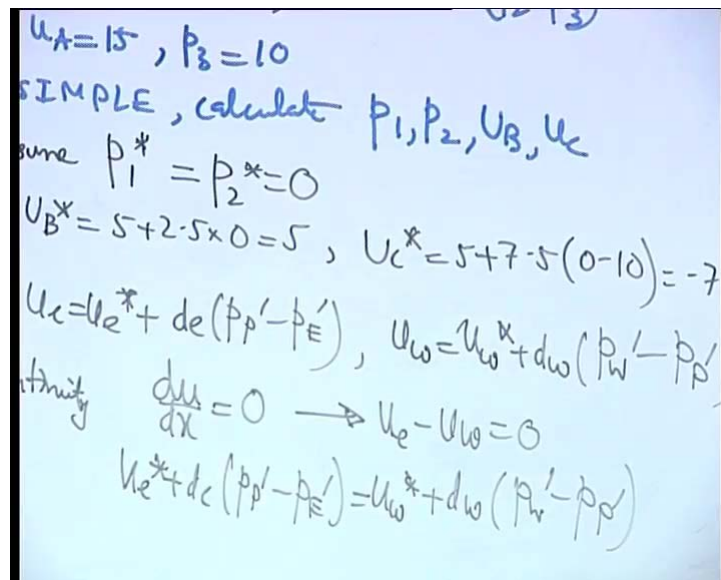 u_A=15, p_3=10
SIMPLE, calculate p_1, p_2, U_B, U_C
sume p_1^* = p_2^*=0
U_B^* = 5+2.5×0=5, U_C^*=5+7.5(0-10)=-7
u_e=u_e^*+de(p_P'-p_E'), u_w=u_w^*+dw(p_W'-p_P'
tinuity du/dx=0 → u_e-u_w=0
u_e^*+de(p_P'-p_E')=u_w^*+dw(p_W'-p_P')